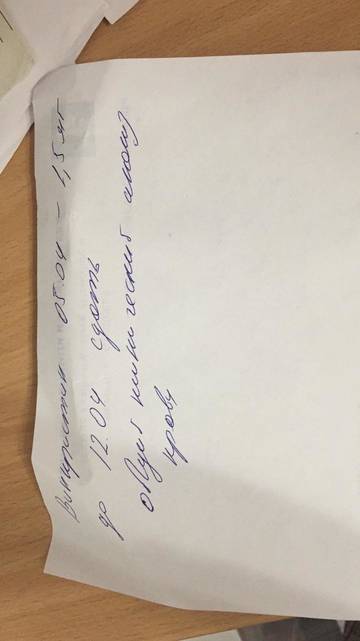 Винкристин 05.04 – 1,5 мг
до 12.04 сдать
общий клинический анализ
крови